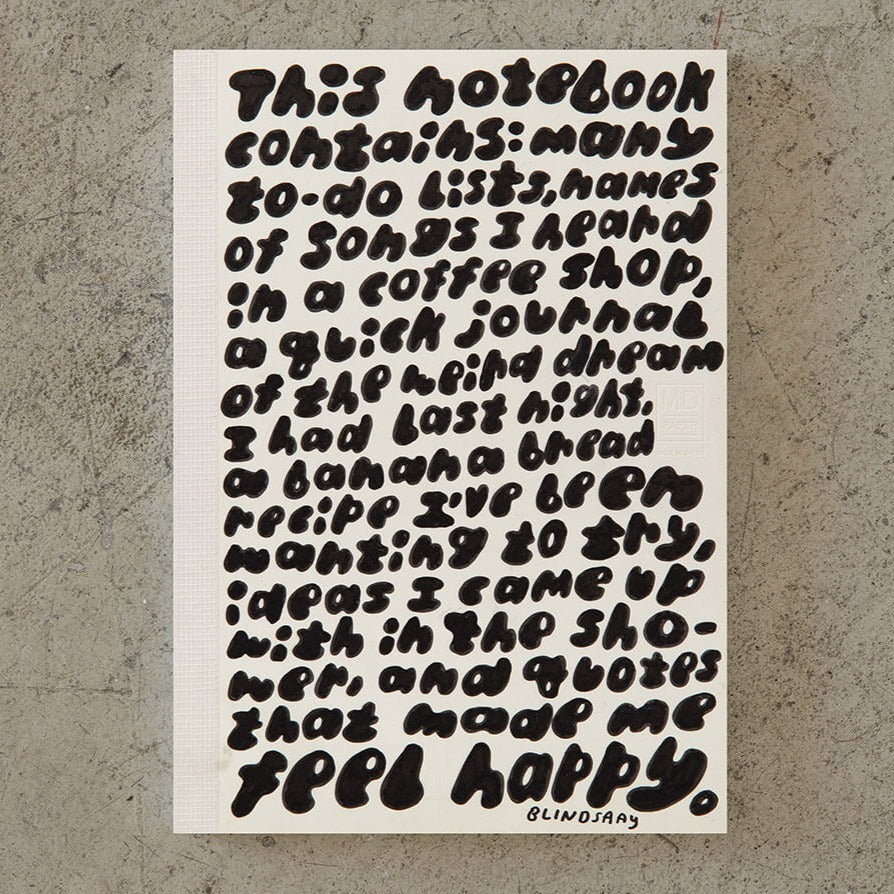 This notebook
contains: many
to-do lists, names
of songs I heard
in a coffee shop,
a quick journal
of the weird dream
I had last night,
a banana bread
recipe I've been
wanting to try,
ideas I came up
with in the sho-
wer, and quotes
that made me
feel happy.
BLINDSAAY
MD
PAPER